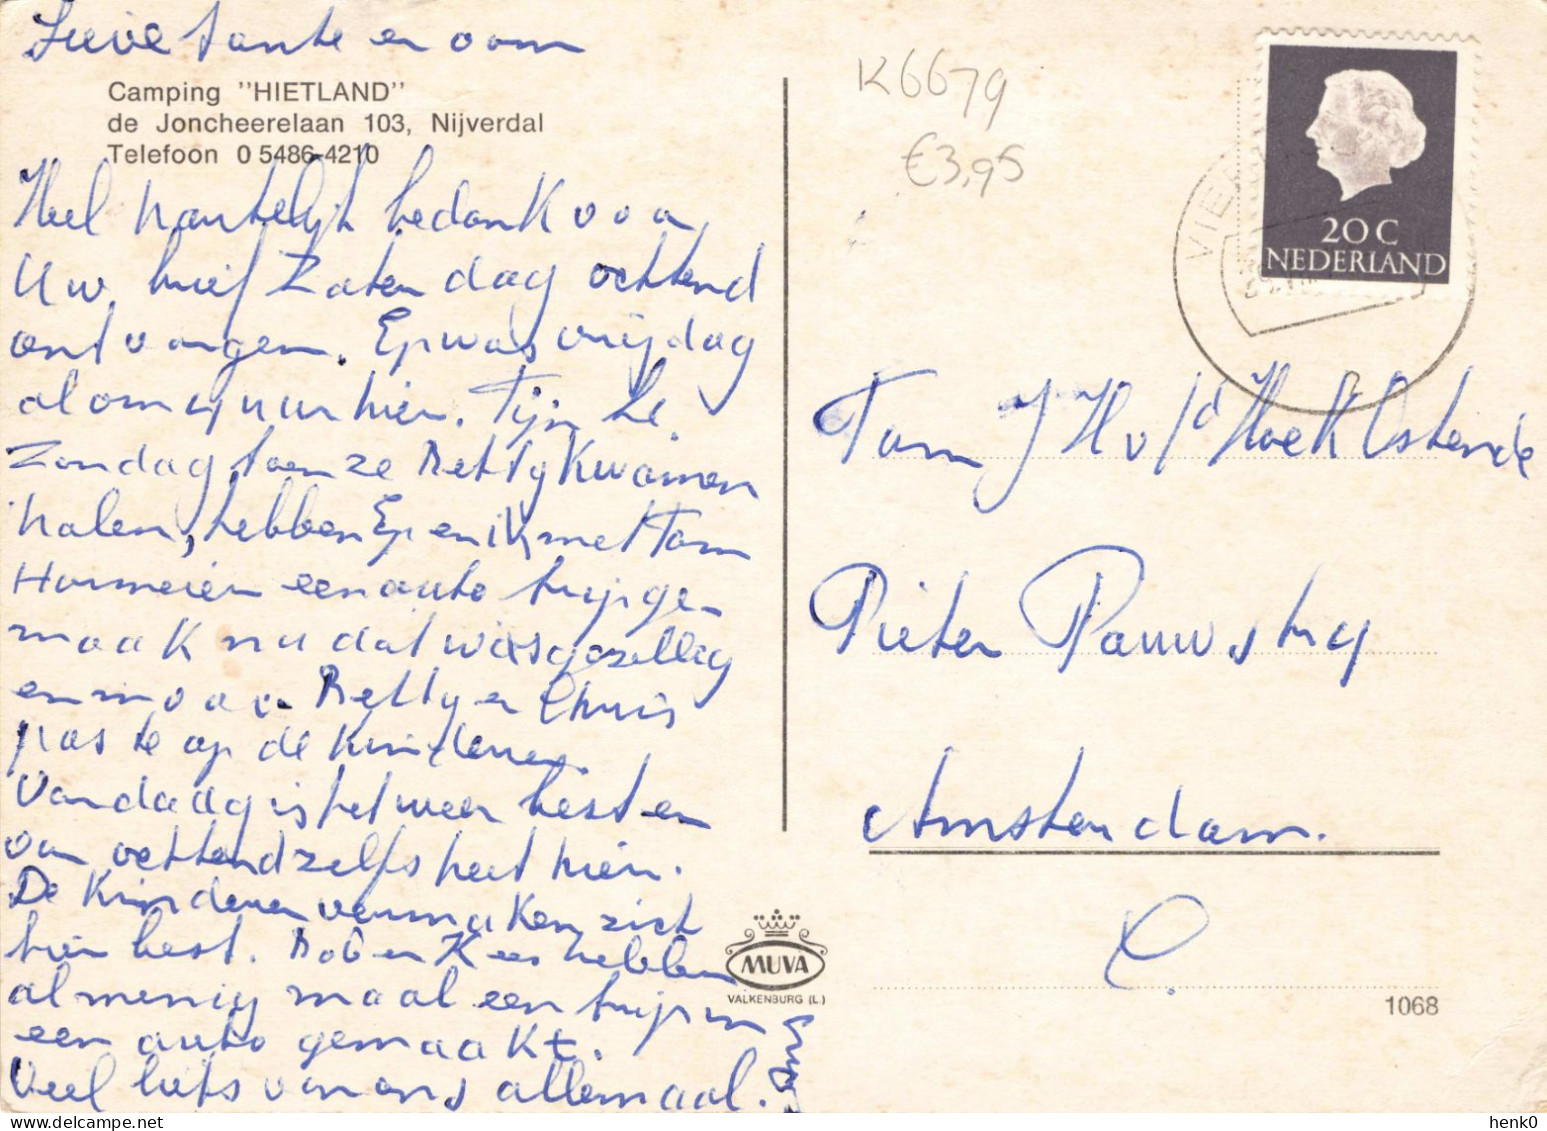 Lieve tante en oom
Camping "HIETLAND"
de Joncheerelaan 103, Nijverdal
Telefoon 0 5486-4210
Heel hartelijk bedank voor
Uw brief Zaterdag ochtend
ontvangen. Ep was vrijdag
al om 4 uur hier. Fijn he.
Zondag, toen ze Betty kwamen
halen, hebben Ep en ik met Tom
een auto trip ge-
maakt nu dat was gezellig
en moai. Betty en Chris
paste op de kinderen.
Vandaag is het weer best en
van ochtend zelfs heet hier.
De Kinderen vermaken zich
hier best. Rob en Kees hebben
al menig maal een trip in
een auto gemaakt.
Veel liefs van ons allemaal.
K6679
€3,95
20 C
NEDERLAND
VIER
Fam J H v/d Hoek Ostende
Pieter Pauwstr 4
Amsterdam.
C.
MUVA
VALKENBURG (L.)
1068
henk0